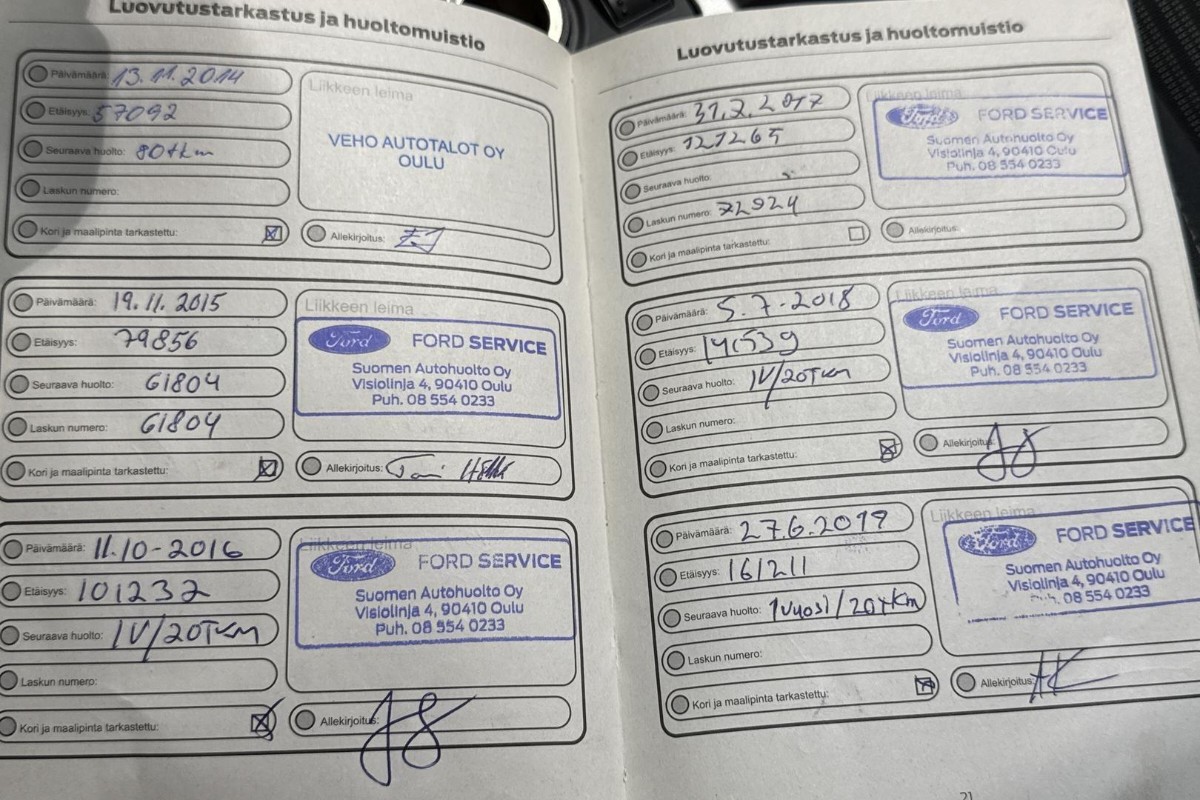 Luovutustarkastus ja huoltomuistio
Päivämäärä: 13.11.2014
Etäisyys: 57092
Seuraava huolto: 80tkm
Laskun numero:
Kori ja maalipinta tarkastettu:
Liikkeen leima
VEHO AUTOTALOT OY
OULU
Allekirjoitus:
Päivämäärä: 19.11.2015
Etäisyys: 79856
Seuraava huolto: 61804
Laskun numero: 61804
Kori ja maalipinta tarkastettu:
Liikkeen leima
Ford FORD SERVICE
Suomen Autohuolto Oy
Visiolinja 4, 90410 Oulu
Puh. 08 554 0233
Allekirjoitus:
Päivämäärä: 11.10-2016
Etäisyys: 101232
Seuraava huolto: 1V/20TKM
Laskun numero:
Kori ja maalipinta tarkastettu:
Liikkeen leima
Ford FORD SERVICE
Suomen Autohuolto Oy
Visiolinja 4, 90410 Oulu
Puh. 08 554 0233
Allekirjoitus:
Luovutustarkastus ja huoltomuistio
Päivämäärä:
Etäisyys: 121265
Seuraava huolto:
Laskun numero: 72924
Kori ja maalipinta tarkastettu:
Liikkeen leima
Ford FORD SERVICE
Suomen Autohuolto Oy
Visiolinja 4, 90410 Oulu
Puh. 08 554 0233
Allekirjoitus:
Päivämäärä: 5.7-2018
Etäisyys:
Seuraava huolto: 1V/20TKM
Laskun numero:
Kori ja maalipinta tarkastettu:
Liikkeen leima
Ford FORD SERVICE
Suomen Autohuolto Oy
Visiolinja 4, 90410 Oulu
Puh. 08 554 0233
Allekirjoitus:
Päivämäärä: 27.6.2019
Etäisyys: 161211
Seuraava huolto: 1vuosi/20tkm
Laskun numero:
Kori ja maalipinta tarkastettu:
Liikkeen leima
Ford FORD SERVICE
Suomen Autohuolto Oy
Visiolinja 4, 90410 Oulu
Puh. 08 554 0233
Allekirjoitus:
21